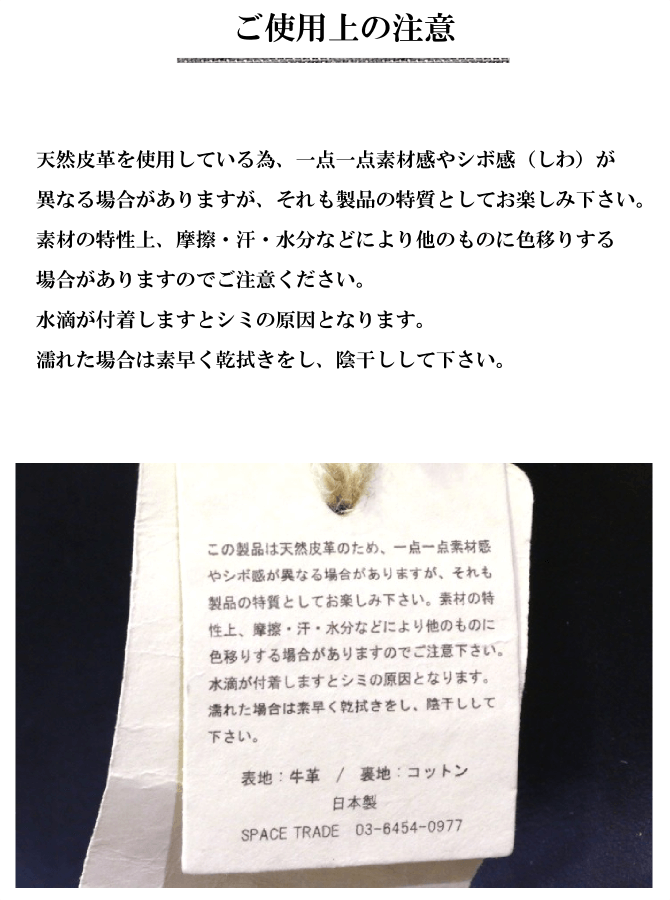 ご使用上の注意
天然皮革を使用している為、一点一点素材感やシボ感（しわ）が
異なる場合がありますが、それも製品の特質としてお楽しみ下さい。
素材の特性上、摩擦・汗・水分などにより他のものに色移りする
場合がありますのでご注意ください。
水滴が付着しますとシミの原因となります。
濡れた場合は素早く乾拭きをし、陰干しして下さい。
この製品は天然皮革のため、一点一点素材感
やシボ感が異なる場合がありますが、それも
製品の特質としてお楽しみ下さい。素材の特
性上、摩擦・汗・水分などにより他のものに
色移りする場合がありますのでご注意下さい。
水滴が付着しますとシミの原因となります。
濡れた場合は素早く乾拭きをし、陰干しして
下さい。
表地：牛革 / 裏地：コットン
日本製
SPACE TRADE 03-6454-0977